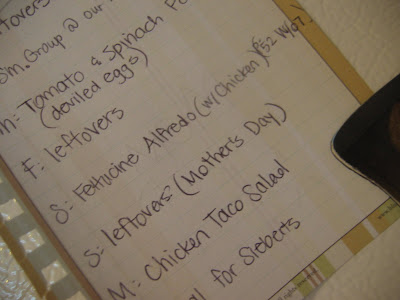 leftovers
Sm. Group @ our
Th: Tomato & Spinach
(deviled eggs)
F: leftovers
S: Fettucine Alfredo (w/ Chicken)
S: leftovers (Mother's Day)
M: Chicken Taco Salad
for Sieberts